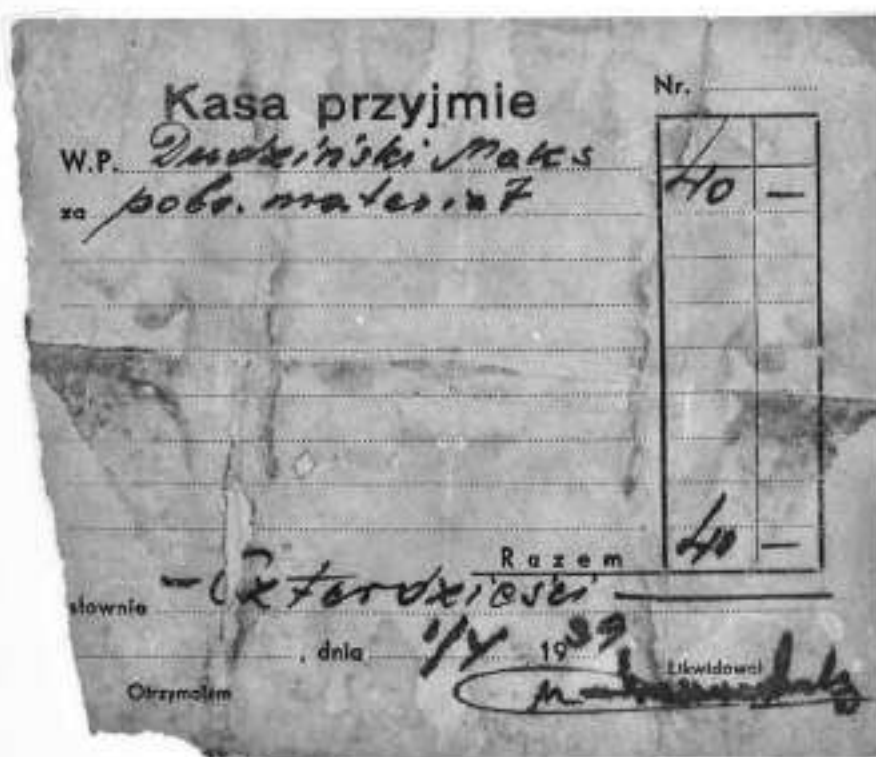 Kasa przyjmie
Nr.
W.P. Dudziński Maks
40 —
za pobr. materiał
Razem 40 —
słownie — Czterdzieści
, dnia 1/V 1939
Likwidował
Otrzymałem